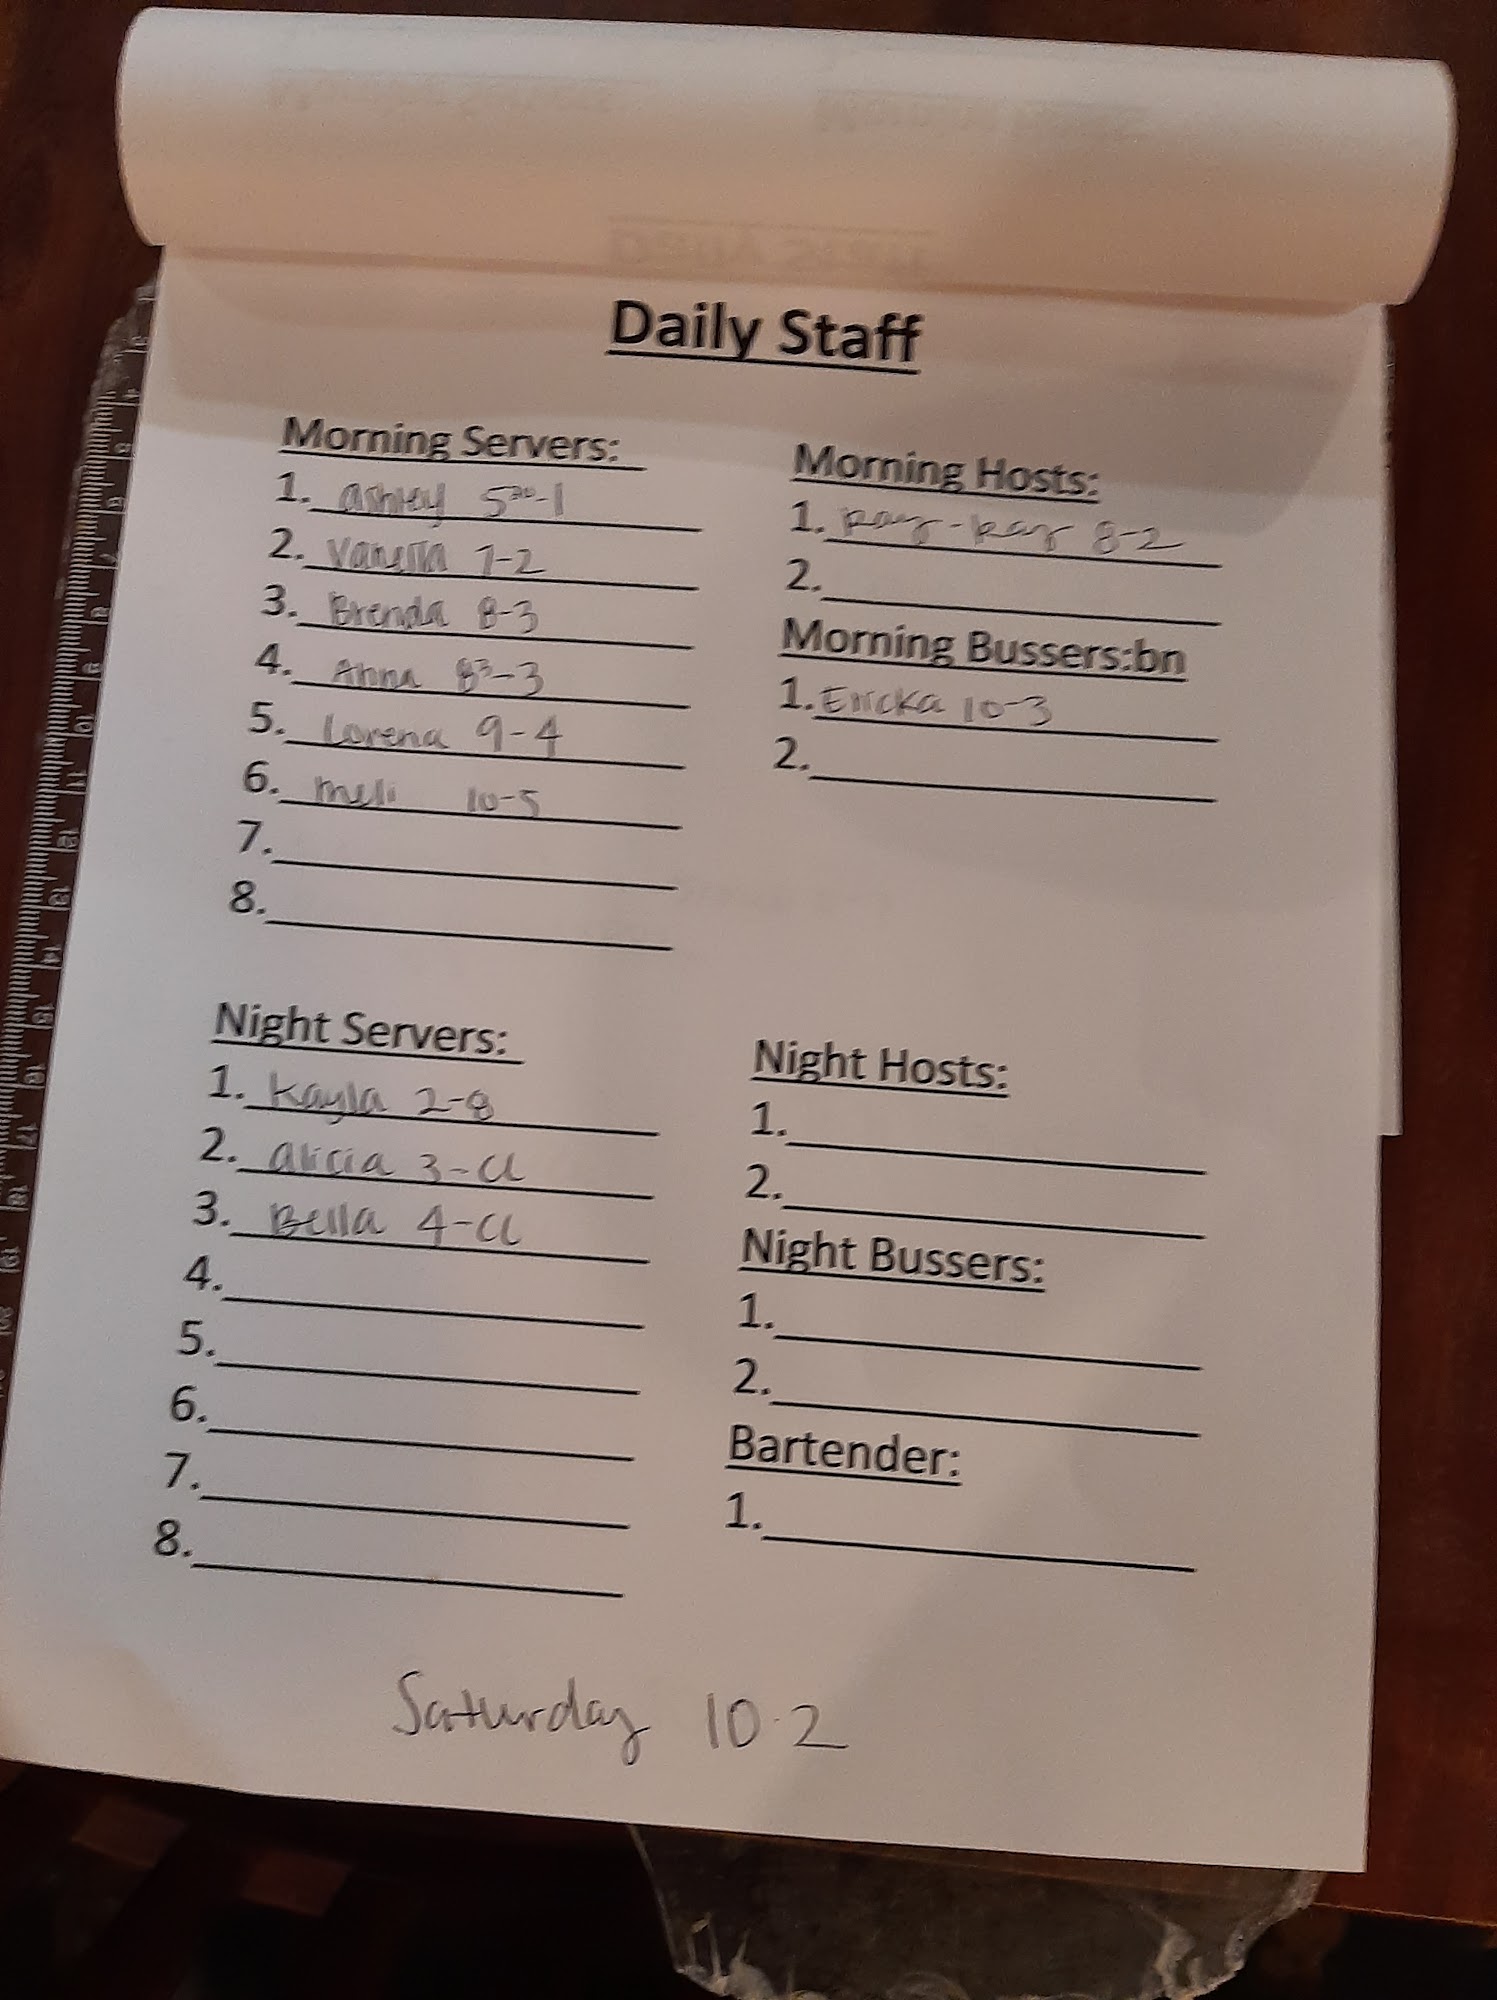 Daily Staff
Morning Servers:
1. Ashley 5³⁰-1
2. Vanessa 7-2
3. Brenda 8-3
4. Anna 8³-3
5. Lorena 9-4
6. meli 10-5
7.
8.
Morning Hosts:
1. Ray-Ray 8-2
2.
Morning Bussers:bn
1. Ericka 10-3
2.
Night Servers:
1. Kayla 2-8
2. Alicia 3-CL
3. Bella 4-CL
4.
5.
6.
7.
8.
Night Hosts:
1.
2.
Night Bussers:
1.
2.
Bartender:
1.
Saturday 10-2